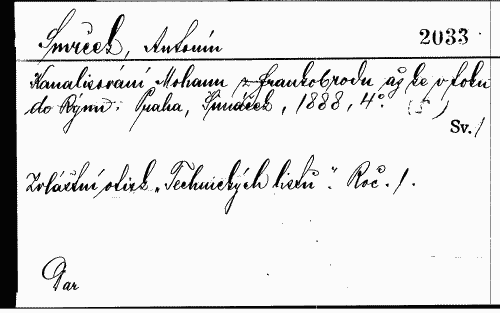 Smrček, Antonín 2033
Kanalisování Mohanu z Frankobrodu až ke vtoku
do Rýnu. Praha, Šimáček, 1888, 4°. (5)
Sv. /
Zvláštní otisk "Technických listů". Roč. 1.
Dar